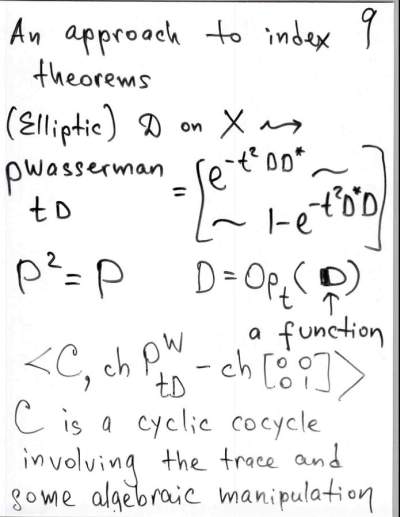 An approach to index 9
theorems
(Elliptic) D on X ⇝
PWasserman tD = [e^{-t² DD*} ~
~ 1-e^{-t²D*D}]
P²=P D=Op_t(D)
↑
a function
<C, ch P^W_{tD} - ch [0 0
0 1]>
C is a cyclic cocycle
involving the trace and
some algebraic manipulation